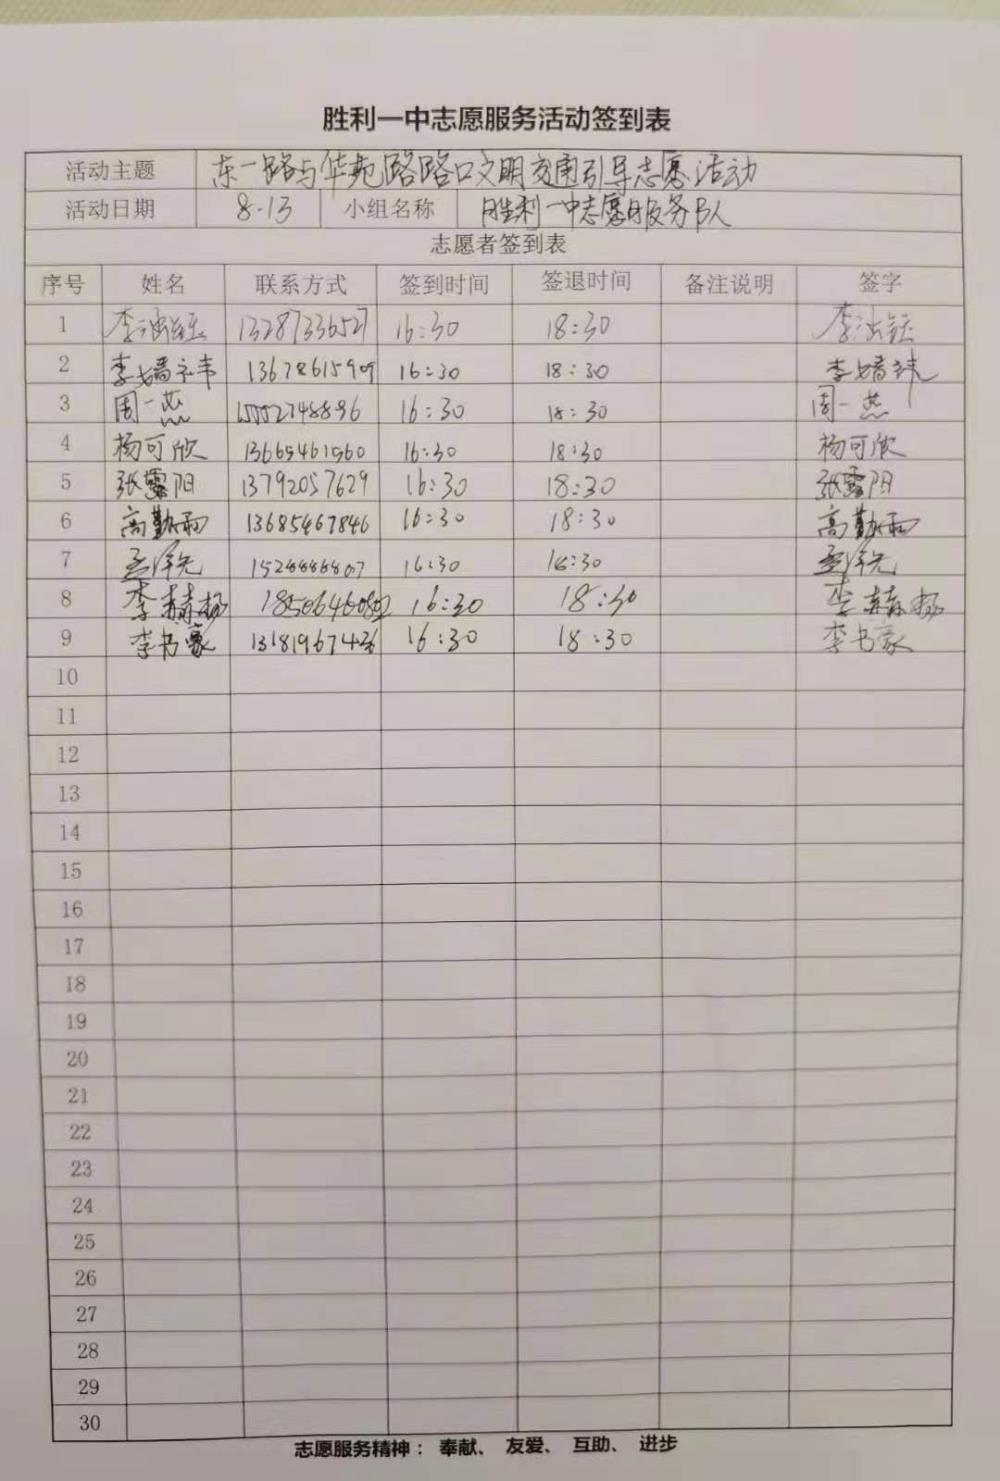 胜利一中志愿服务活动签到表
活动主题 东一路与华苑路路口文明交通引导志愿活动
活动日期 8.13 小组名称 胜利一中志愿服务队
志愿者签到表
序号 姓名 联系方式 签到时间 签退时间 备注说明 签字
1 李涵钰 13287336527 16:30 18:30 李涵钰
2 李婧祎 13678615909 16:30 18:30 李婧祎
3 周一燕 16:30 18:30 周一燕
4 杨可欣 13665461560 16:30 18:30 杨可欣
5 张露阳 13792057629 16:30 18:30 张露阳
6 高勤雨 13685467846 16:30 18:30 高勤雨
7 孟泽先 16:30 18:30 孟泽先
8 李赫杨 16:30 18:30 李赫杨
9 李书豪 16:30 18:30 李书豪
10
11
12
13
14
15
16
17
18
19
20
21
22
23
24
25
26
27
28
29
30
志愿服务精神： 奉献、 友爱、 互助、 进步